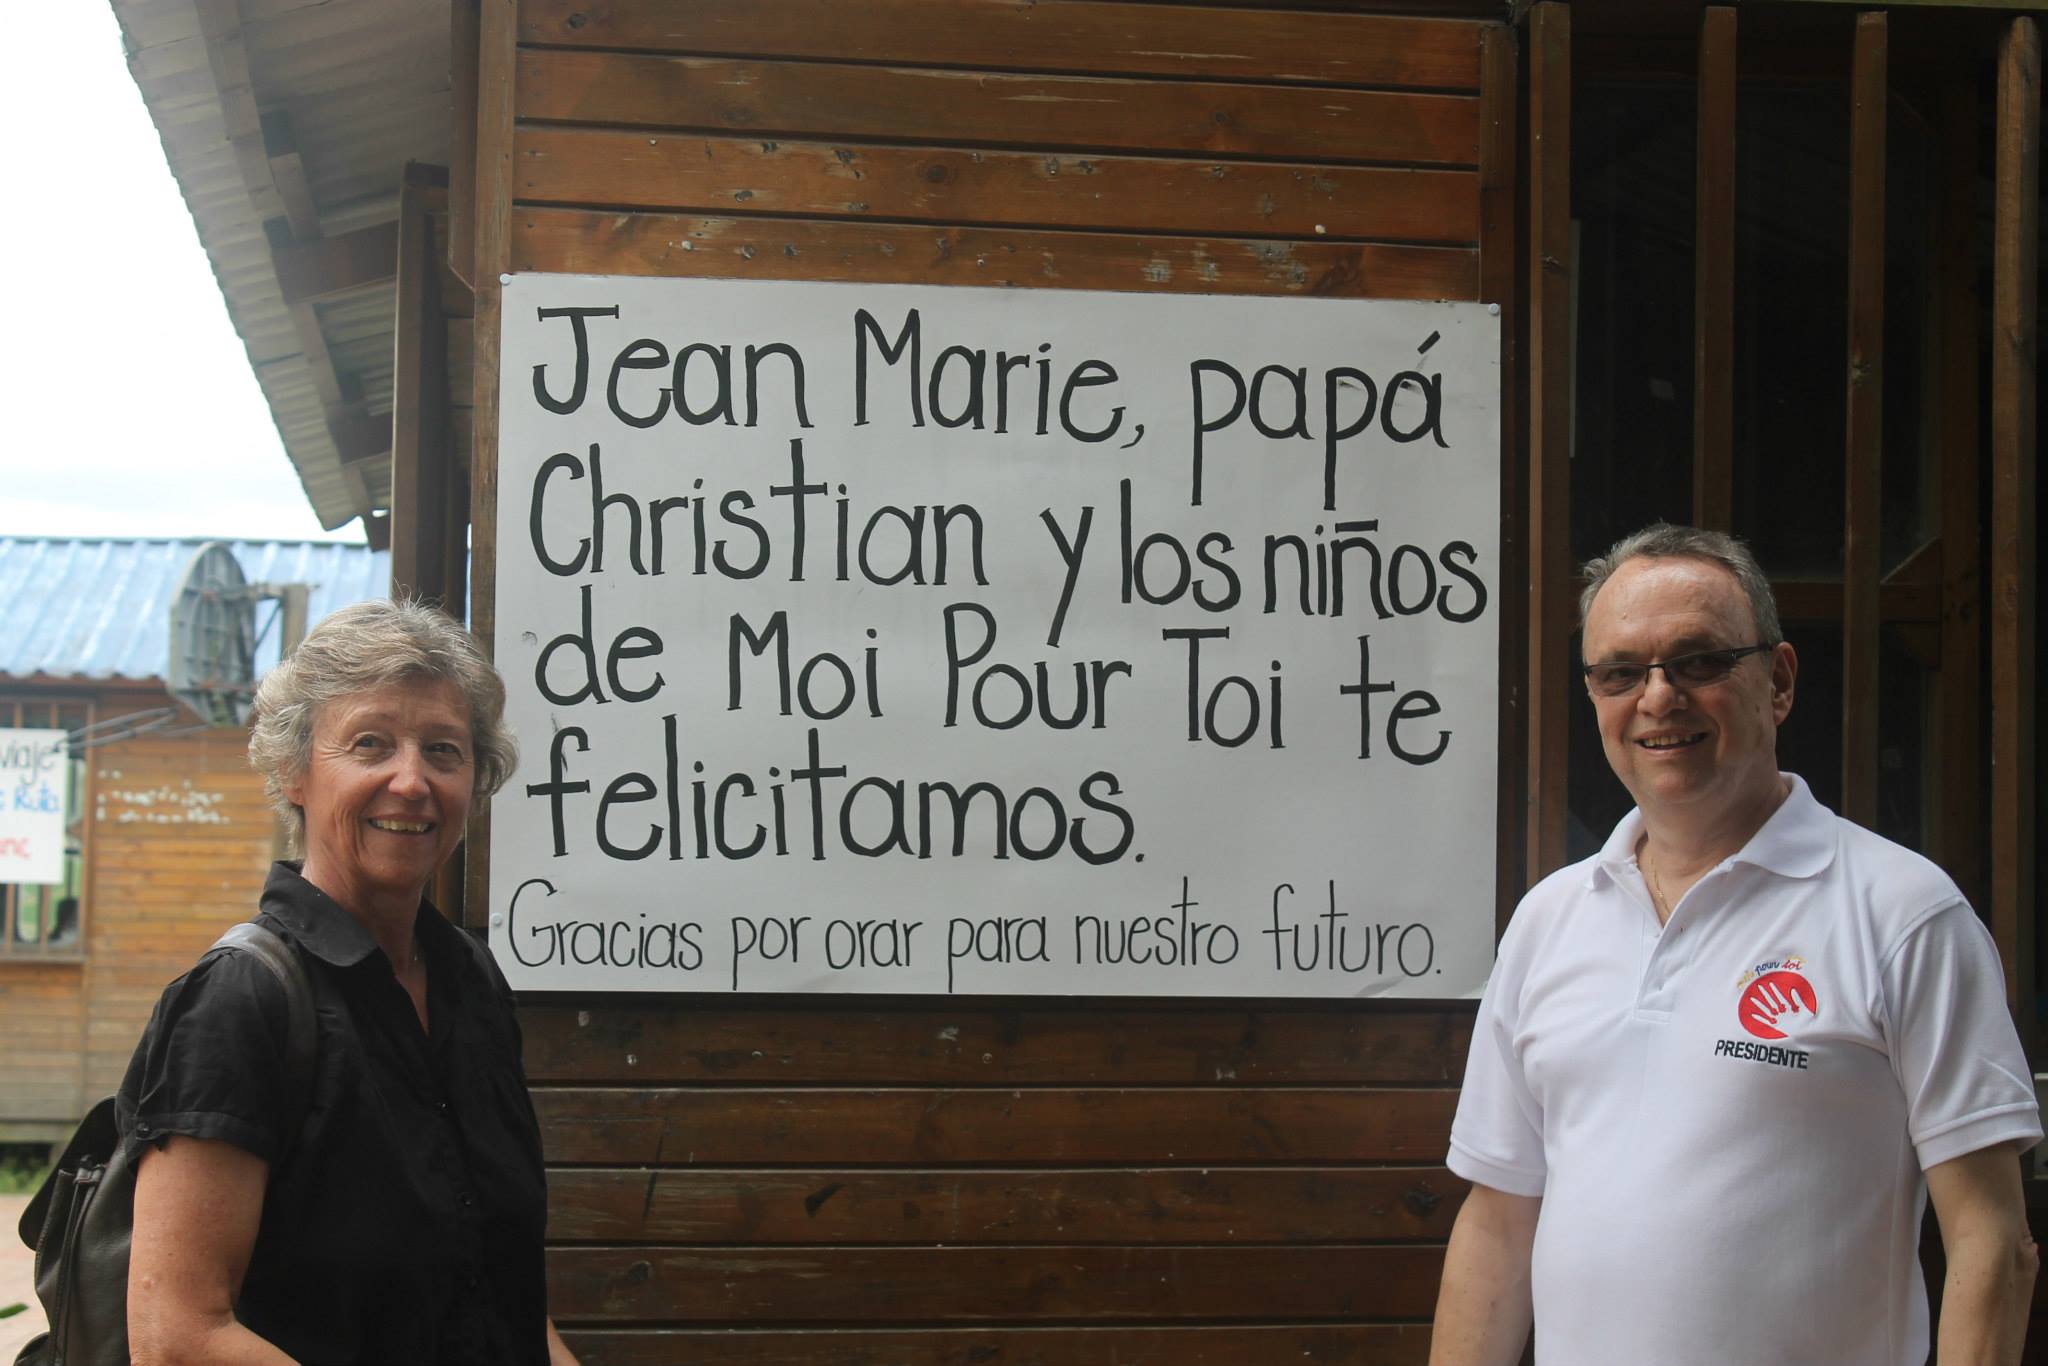 Jean Marie, papá
Christian y los niños
de Moi Pour Toi te
felicitamos.
Gracias por orar para nuestro futuro.
viaje
Ruta
pour toi
PRESIDENTE